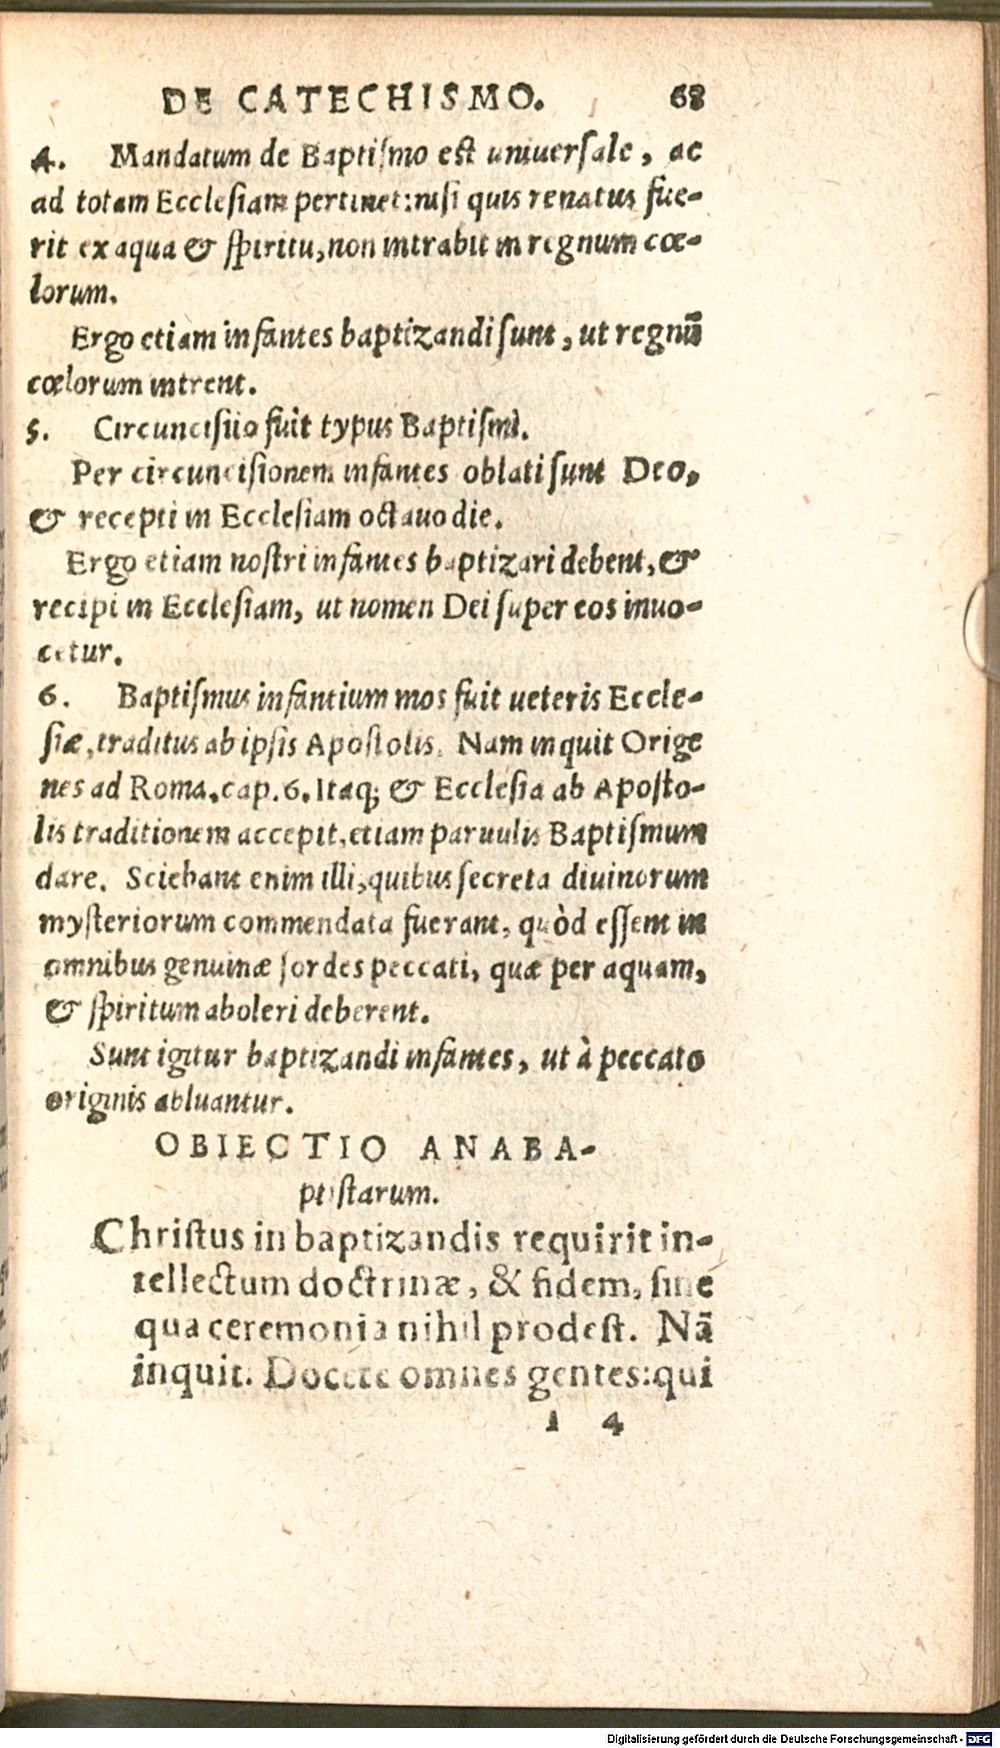 DE CATECHISMO. 68
4. Mandatum de Baptiſmo eſt uniuerſale, ac
ad totam Eccleſiam pertinet: niſi quis renatus fue-
rit ex aqua & ſpiritu, non intrabit in regnum cœ-
lorum.
Ergo etiam infantes baptizandi ſunt, ut regnū
cœlorum intrent.
5. Circunciſiio fuit typus Baptiſmi.
Per circunciſionem infantes oblati ſunt Deo,
& recepti in Eccleſiam octauo die.
Ergo etiam noſtri infantes baptizari debent, &
recipi in Eccleſiam, ut nomen Dei ſuper eos inuo-
cetur.
6. Baptiſmus infantium mos fuit ueteris Eccle-
ſiæ, traditus ab ipſis Apoſtolis. Nam inquit Orige
nes ad Roma. cap. 6. Itaq; & Eccleſia ab Apoſto-
lis traditionem accepit, etiam paruulis Baptiſmum
dare. Sciebant enim illi, quibus ſecreta diuinorum
myſteriorum commendata fuerant, quòd eſſent in
omnibus genuinæ ſordes peccati, quæ per aquam,
& ſpiritum aboleri deberent.
Sunt igitur baptizandi infantes, ut à peccato
originis abluantur.
OBIECTIO ANABA-
ptiſtarum.
Chriſtus in baptizandis requirit in-
tellectum doctrinæ, & fidem, ſine
qua ceremonia nihil prodeſt. Nā
inquit. Docete omnes gentes: qui
I 4
Digitalisierung gefördert durch die Deutsche Forschungsgemeinschaft - DFG